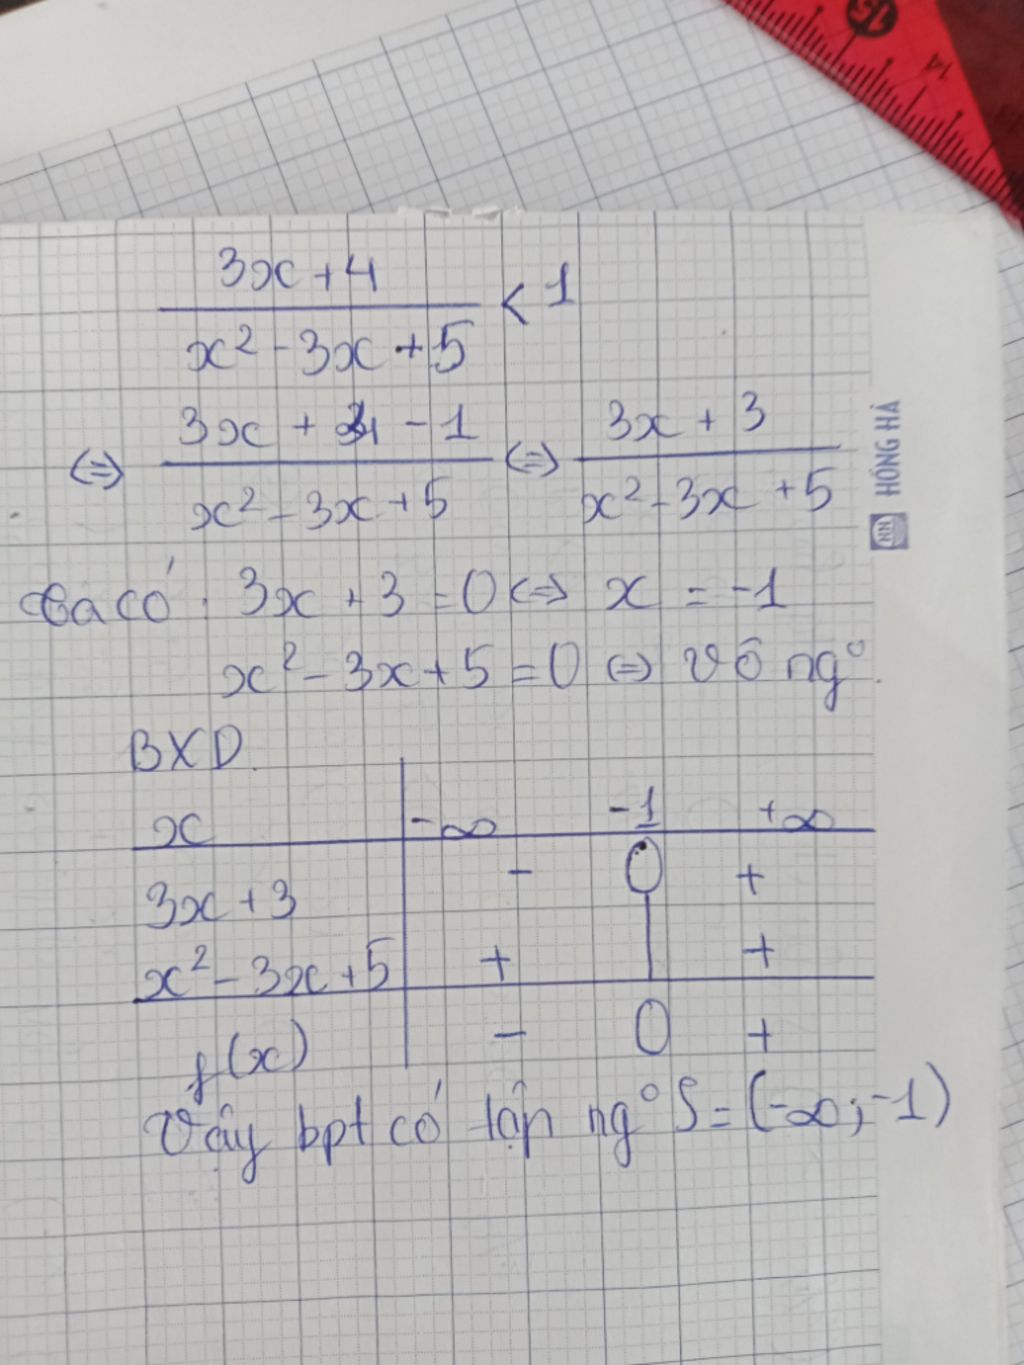 15
14
3x + 4 / x² - 3x + 5 < 1
⇔ 3x + 4 - 1 / x² - 3x + 5 ⇔ 3x + 3 / x² - 3x + 5
HỒNG HÀ
HH
Ta có: 3x + 3 = 0 ⇔ x = -1
x² - 3x + 5 = 0 ⇔ vô ng°.
BXD
x | -∞ -1 +∞
3x + 3 | - 0 +
x² - 3x + 5 | + | +
f(x) | - 0 +
Vậy bpt có tập ng° S = (-∞; -1)